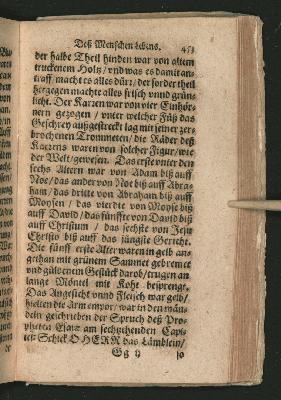 Deß Menschen Lebens. 453
der halbe Theil hinden war von altem
truckenem Holtz / vnd was es damit an-
traff / macht es alles dürr / der forder theil
hergegen machte alles frisch vnnd grün-
licht. Der Karren war von vier Einhör-
nern gezogen / vnter welcher Füß das
Geschrey außgestreckt lag mit seiner zer-
brochenen Trommeten / die Räder deß
Karrens waren von solcher Figur / wie
der Welt / gewesen. Das erste vnter den
sechs Altern war von Adam biß auff
Noe / das ander von Noe biß auff Abra-
ham / das dritte von Abraham biß auff
Moysen / das vierdte von Moyse biß
auff David / das fünffte von David biß
auff Christum / das sechste von Jesu
Christo biß auff das jüngste Gericht.
Die fünff erste Alter waren in gelb an-
gethan mit grünem Sammet gebremet
vnd güldenem Gestück darob / trugen an
lange Mäntel mit Koht besprengt.
Das Angesicht vnnd Fleisch war gelb /
hielten die Arm empor / war in den män-
deln geschrieben der Spruch deß Pro-
pheten Esaiæ am sechtzehenden Capi-
tel: Schick O HERR das Lämblein /
Gg ij so